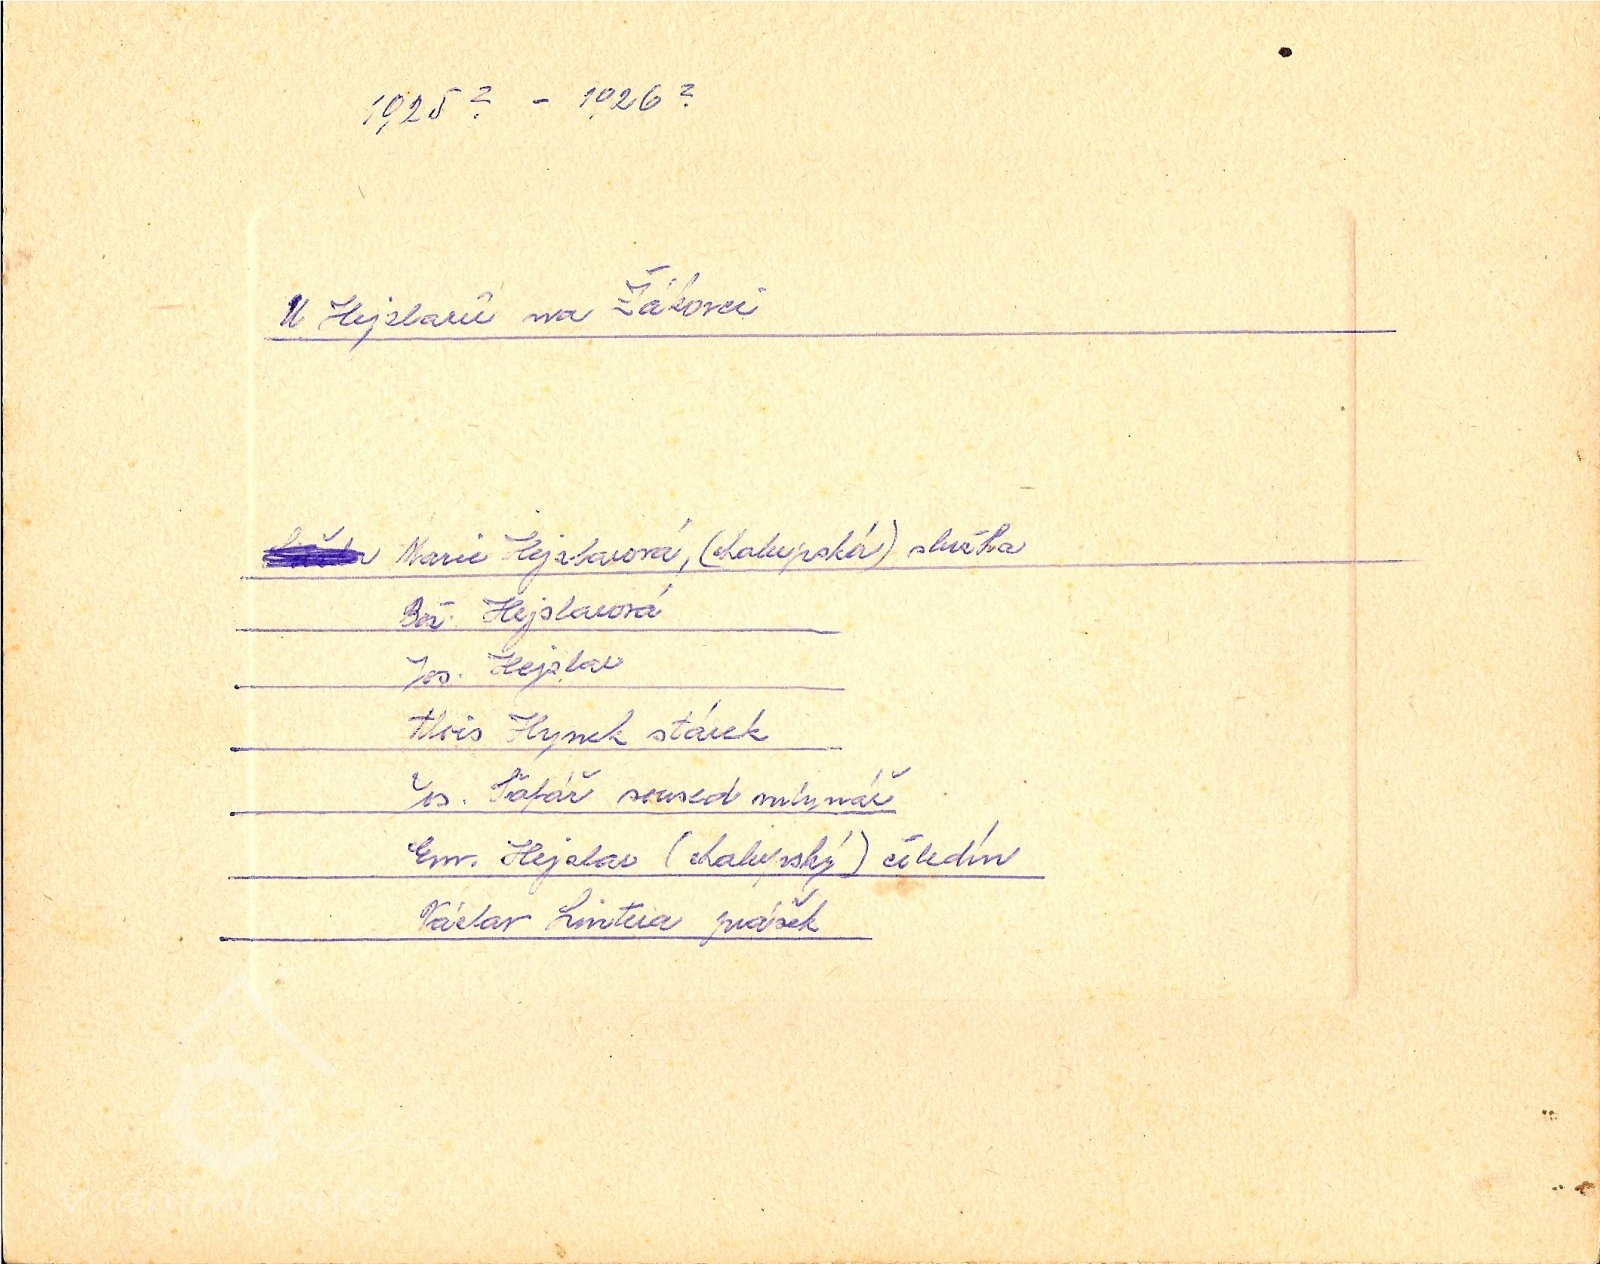 1925? - 1926?
U Hejslarů na Žákovci
Marie Hejslarová, (chalupská) služka
Bož. Hejslarová
Jos. Hejslar
Alois Hynek stárek
Jos. Šafář soused mlynář
Em. Hejslar (chalupský) čeledín
Václav prášek
vodnimlyny.cz